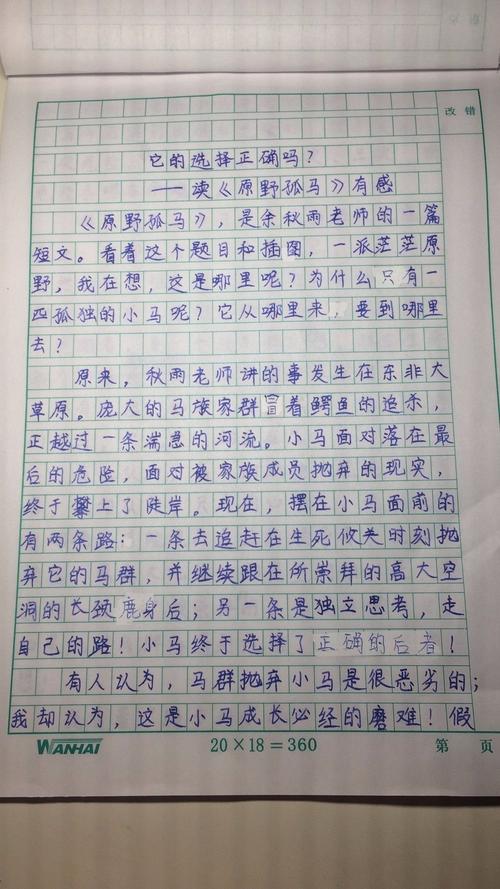 改错
它的选择正确吗？
——读《原野孤马》有感
《原野孤马》，是余秋雨老师的一篇
短文。看着这个题目和插图，一派茫茫原
野，我在想，这是哪里呢？为什么只有一
匹孤独的小马呢？它从哪里来，要到哪里
去？
原来，秋雨老师讲的事发生在东非大
草原。庞大的马族家群冒着鳄鱼的追杀，
正越过一条湍急的河流。小马面对落在最
后的危险，面对被家族成员抛弃的现实，
终于攀上了陡岸。现在，摆在小马面前的
有两条路：一条去追赶在生死攸关时刻抛
弃它的马群，并继续跟在所崇拜的高大空
洞的长颈鹿身后；另一条是独立思考，走
自己的路！小马终于选择了正确的后者！
有人认为，马群抛弃小马是很恶劣的；
我却认为，这是小马成长必经的磨难！假
WANHAI 20×18＝360 第 页